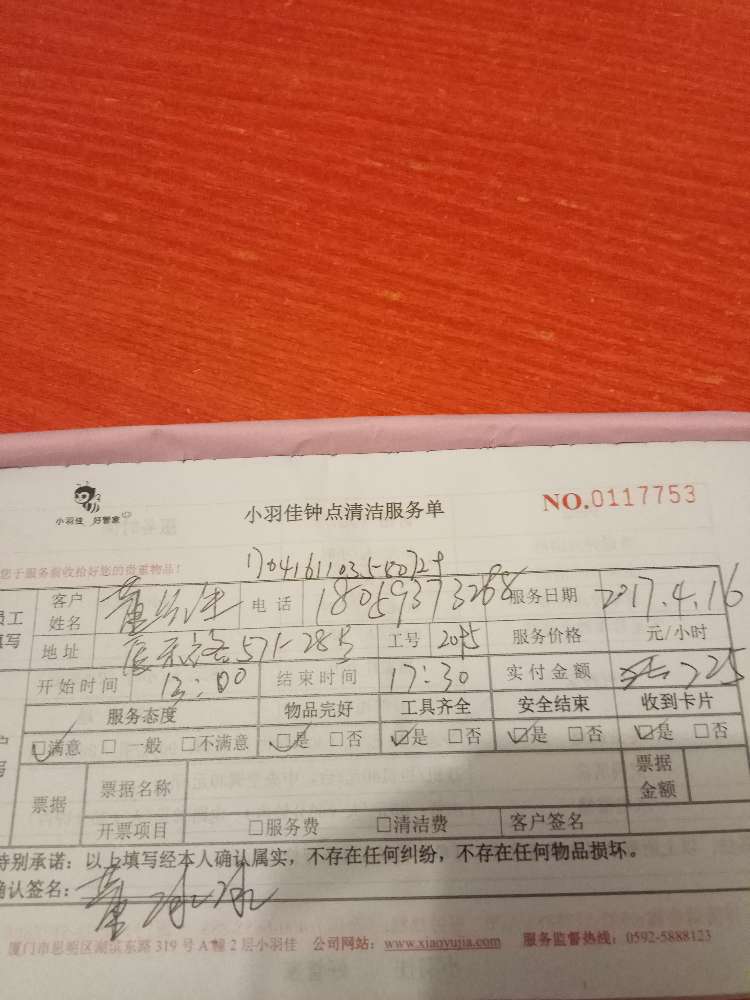 小羽佳 好管家
小羽佳钟点清洁服务单
NO.0117753
您于服务前收检好您的贵重物品!
员工填写
客户姓名 董 电话 18059373288 服务日期 2017.4.16
地址 571-28号 工号 2055 服务价格 元/小时
开始时间 13:00 结束时间 17:30 实付金额 225
服务态度 物品完好 工具齐全 安全结束 收到卡片
☑满意 □一般 □不满意 ☑是 □否 ☑是 □否 ☑是 □否 ☑是 □否
票据 票据名称 票据金额
开票项目 □服务费 □清洁费 客户签名
特别承诺:以上填写经本人确认属实,不存在任何纠纷,不存在任何物品损坏。
确认签名: 董
厦门市思明区湖滨东路 319 号 A 幢 2 层小羽佳 公司网站:www.xiaoyujia.com 服务监督热线:0592-5888123